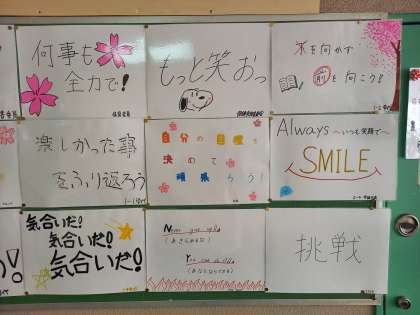 何事も
全力で!
もっと笑おっ
本を向かず
前を向こう!
楽しかった事
をふり返ろう
自分の目標を
決めて
頑張ろう!
Always
〜いつも笑顔で〜
SMILE
気合いだ!
気合いだ!
気合いだ!
Never give up!!
(あきらめるな)
You can do it!!
(あなたならできる)
挑戦